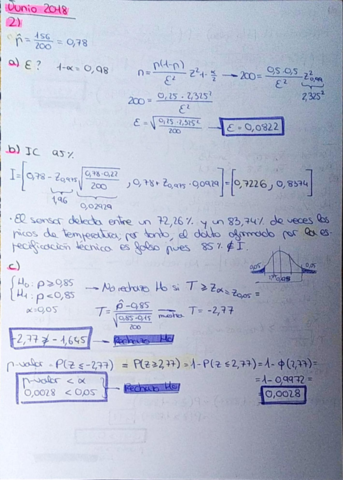 Junio 2018
2)
p̂ = 156/200 = 0,78
a) ε? 1-α = 0,98 n = p(1-p)/ε² z²1-α/2 → 200 = 0,5·0,5/ε² z²0,99
200 = 0,25·2,325²/ε² 2,325²
ε = √(0,25·2,325²/200) ε = 0,0822
b) IC 95%
I = [0,78 - z0,975 √(0,78·0,22/200), 0,78 + z0,975 · 0,0292] = [0,7226, 0,8374]
1,96 0,0292
· El sensor detecta entre un 72,26% y un 83,74% de veces los
picos de temperatura, por tanto, el dato afirmado por la es-
pecificación técnica es falso pues 85% ∉ I.
c)
{H₀: p ≥ 0,85 → No rechazo H₀ si T ≥ zα = z0,05 =
H₁: p < 0,85
α = 0,05 T = p̂ - 0,85/√(0,85·0,15/200) → T = -2,77
-2,77 ≱ -1,645 → Rechazo H₀
p-valor = P(Z ≤ -2,77) = P(Z ≥ 2,77) = 1 - P(Z ≤ 2,77) = 1 - ϕ(2,77) =
p-valor < α → Rechazo H₀ = 1 - 0,9972 =
0,0028 < 0,05 0,0028